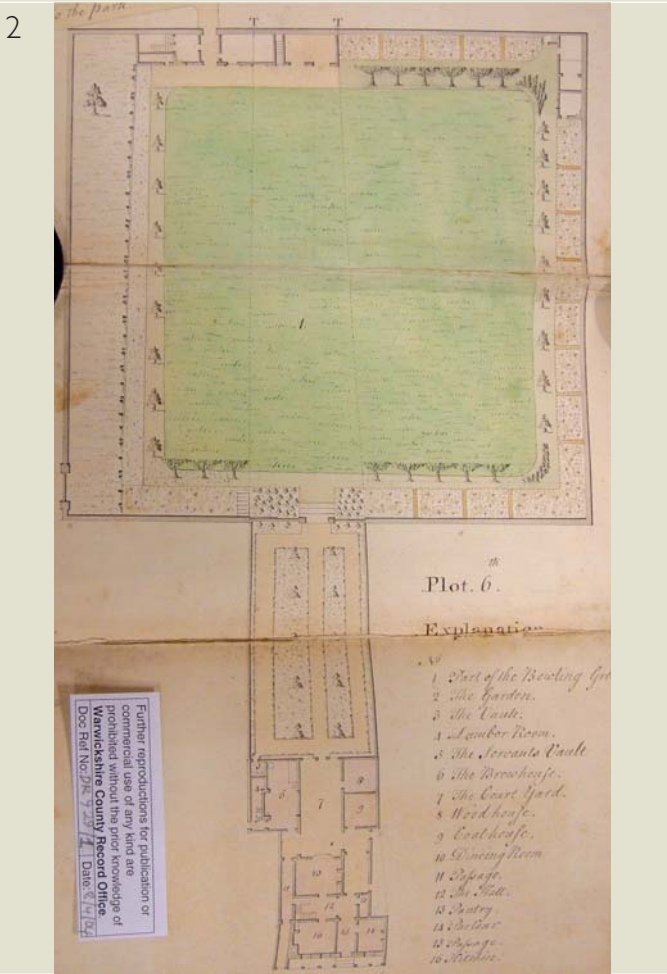 2
o the park.
T T
1
Plot. 6th.
Explanation
No
1 Part of the Bowling Gre
2 The Garden.
3 The Vault.
4 Lumber Room.
5 The Servants Vault
6 The Brewhouse.
7 The Court Yard.
8 Woodhouse.
9 Coalhouse.
10 Dineing Room
11 Passage.
12 The Hall.
13 Pantry.
14 Parlour
15 Passage.
16 Kitchin.
6
7
8
9
10
12
16
Further reproductions for publication or
commercial use of any kind are
prohibited without the prior knowledge of
Warwickshire County Record Office.
Doc Ref No: DR 9 29/1 Date: